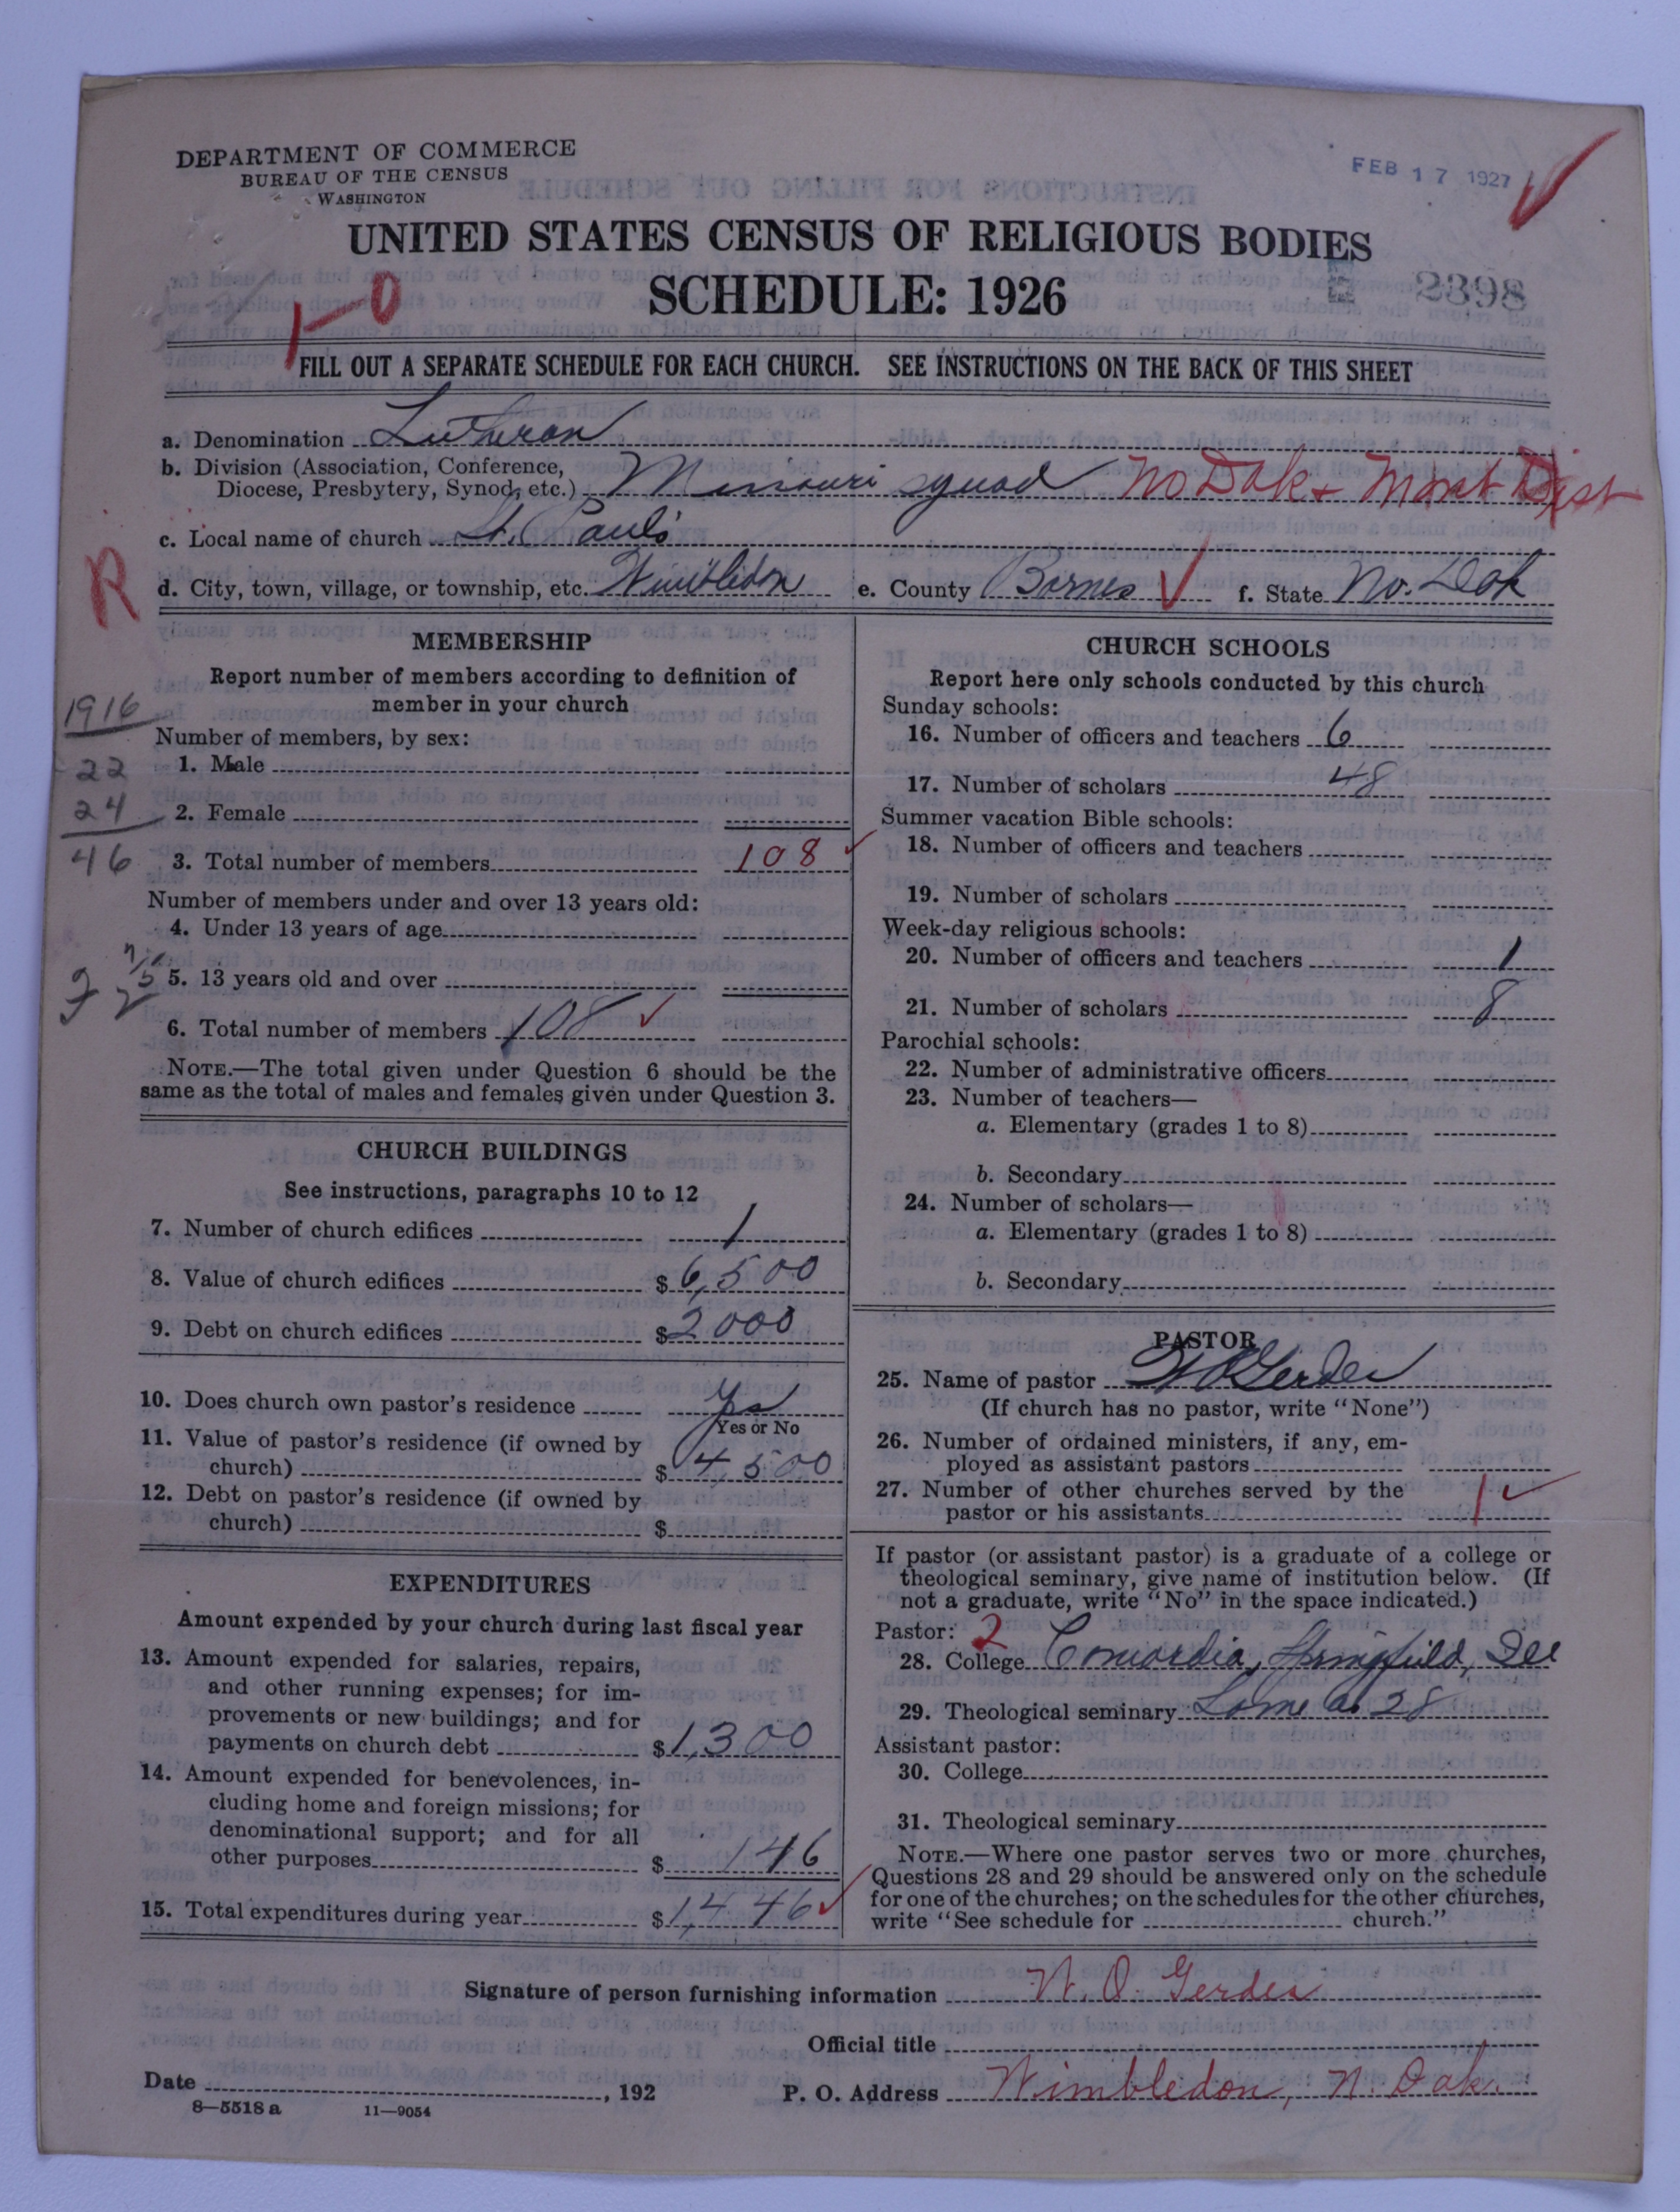 DEPARTMENT OF COMMERCE
BUREAU OF THE CENSUS
WASHINGTON
FEB 17 1927
UNITED STATES CENSUS OF RELIGIOUS BODIES
SCHEDULE: 1926
2398
1-0
FILL OUT A SEPARATE SCHEDULE FOR EACH CHURCH. SEE INSTRUCTIONS ON THE BACK OF THIS SHEET
a. Denomination Lutheran
b. Division (Association, Conference,
Diocese, Presbytery, Synod, etc.) Missouri synod No Dak & Mont Dist
c. Local name of church St. Paul's
R
d. City, town, village, or township, etc. Wimbledon e. County Barnes f. State No. Dak
MEMBERSHIP
Report number of members according to definition of
member in your church
1916
Number of members, by sex:
22 1. Male
24 2. Female
46 3. Total number of members 108
Number of members under and over 13 years old:
4. Under 13 years of age
5. 13 years old and over
6. Total number of members 108
NOTE.—The total given under Question 6 should be the
same as the total of males and females given under Question 3.
CHURCH BUILDINGS
See instructions, paragraphs 10 to 12
7. Number of church edifices 1
8. Value of church edifices $ 6,500
9. Debt on church edifices $ 2000
10. Does church own pastor's residence Yes
Yes or No
11. Value of pastor's residence (if owned by
church) $ 4500
12. Debt on pastor's residence (if owned by
church) $
EXPENDITURES
Amount expended by your church during last fiscal year
13. Amount expended for salaries, repairs,
and other running expenses; for im-
provements or new buildings; and for
payments on church debt $ 1,300
14. Amount expended for benevolences, in-
cluding home and foreign missions; for
denominational support; and for all
other purposes $ 146
15. Total expenditures during year $ 1,446
CHURCH SCHOOLS
Report here only schools conducted by this church
Sunday schools:
16. Number of officers and teachers 6
17. Number of scholars 48
Summer vacation Bible schools:
18. Number of officers and teachers
19. Number of scholars
Week-day religious schools:
20. Number of officers and teachers 1
21. Number of scholars 8
Parochial schools:
22. Number of administrative officers
23. Number of teachers—
a. Elementary (grades 1 to 8)
b. Secondary
24. Number of scholars—
a. Elementary (grades 1 to 8)
b. Secondary
PASTOR
25. Name of pastor W O Gerdes
(If church has no pastor, write "None")
26. Number of ordained ministers, if any, em-
ployed as assistant pastors
27. Number of other churches served by the
pastor or his assistants 1
If pastor (or assistant pastor) is a graduate of a college or
theological seminary, give name of institution below. (If
not a graduate, write "No" in the space indicated.)
Pastor: 2
28. College Concordia, Springfield, Ill
29. Theological seminary Same as 28
Assistant pastor:
30. College
31. Theological seminary
NOTE.—Where one pastor serves two or more churches,
Questions 28 and 29 should be answered only on the schedule
for one of the churches; on the schedules for the other churches,
write "See schedule for church."
Signature of person furnishing information W. O. Gerdes
Official title
Date , 192 P. O. Address Wimbledon, N. Dak.
8—5518 a 11—9054